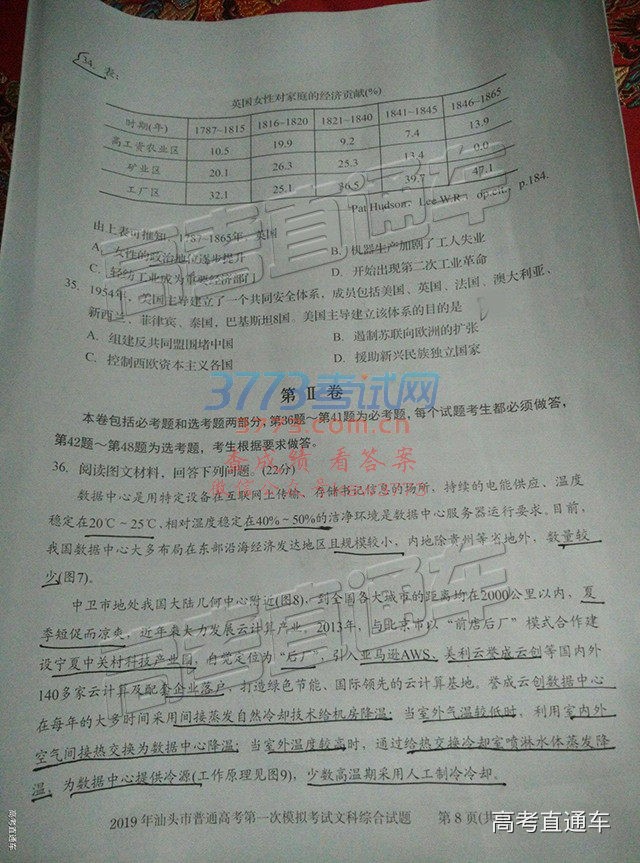 34. 表:
英国女性对家庭的经济贡献(%)
时期(年) 1787~1815 1816~1820 1821~1840 1841~1845 1846~1865
高工资农业区 10.5 19.9 9.2 7.4 13.9
矿业区 20.1 26.3 25.3 13.4 0.0
工厂区 32.1 25.1 36.5 39.7 47.1
Pat Hudson, Lee W.R op.cit, p.184.
由上表可推知, 1787~1865年, 英国
A. 女性的政治地位逐步提升 B. 机器生产加剧了工人失业
C. 轻纺工业成为重要经济部门 D. 开始出现第二次工业革命
35. 1954年, 美国主导建立了一个共同安全体系, 成员包括美国、英国、法国、澳大利亚、
新西兰、菲律宾、泰国, 巴基斯坦8国。美国主导建立该体系的目的是
A. 组建反共同盟围堵中国 B. 遏制苏联向欧洲的扩张
C. 控制西欧资本主义各国 D. 援助新兴民族独立国家
3773考试网
第Ⅱ卷
本卷包括必考题和选考题两部分, 第36题~第41题为必考题, 每个试题考生都必须做答,
第42题~第48题为选考题, 考生根据要求做答。
查成绩 看答案
36. 阅读图文材料, 回答下列问题。(22分)
数据中心是用特定设备在互联网上传输、存储书记信息的场所, 持续的电能供应、温度
稳定在20℃~25℃, 相对湿度稳定在40%~50%的洁净环境是数据中心服务器运行要求, 目前,
我国数据中心大多布局在东部沿海经济发达地区且规模较小, 内地除贵州等省地外, 数量较
少(图7)。
中卫市地处我国大陆几何中心附近(图8), 到全国各大城市的距离均在2000公里以内, 夏
季短促而凉爽, 近年来大力发展云计算产业。2013年, 与北京市以“前店后厂”模式合作建
设宁夏中关村科技产业园, 自觉定位为“后厂”, 引入亚马逊AWS、美利云誉成云创等国内外
140多家云计算及配套企业落户, 打造绿色节能、国际领先的云计算基地。誉成云创数据中心
在每年的大多时间采用间接蒸发自然冷却技术给机房降温; 当室外气温较低时, 利用室内外
空气间接热交换为数据中心降温; 当室外温度较高时, 通过给热交换冷却室喷淋水体蒸发降
温, 为数据中心提供冷源(工作原理见图9), 少数高温期采用人工制冷冷却。
2019年汕头市普通高考第一次模拟考试文科综合试题 第8页(共
高考直通车
高考直通车
高考直通车
高考直通车